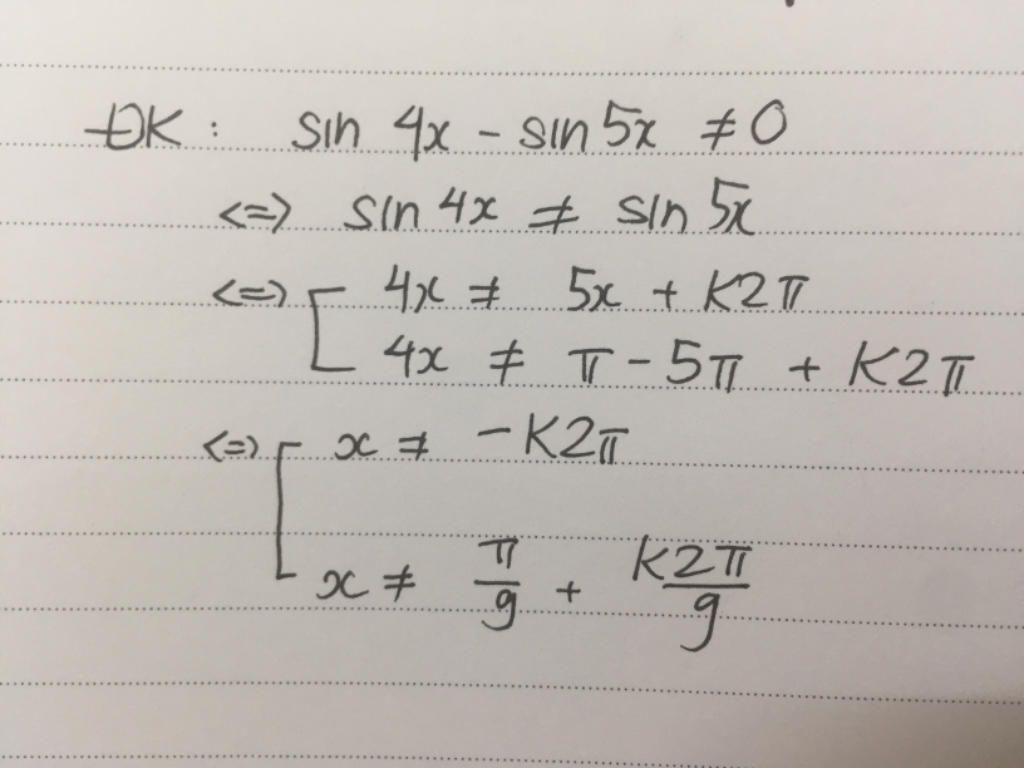 ĐK : sin 4x - sin 5x ≠ 0
<=> sin 4x ≠ sin 5x
<=> [ 4x ≠ 5x + K2π
4x ≠ π - 5π + K2π
<=> [ x ≠ -K2π
x ≠ π/9 + K2π/9